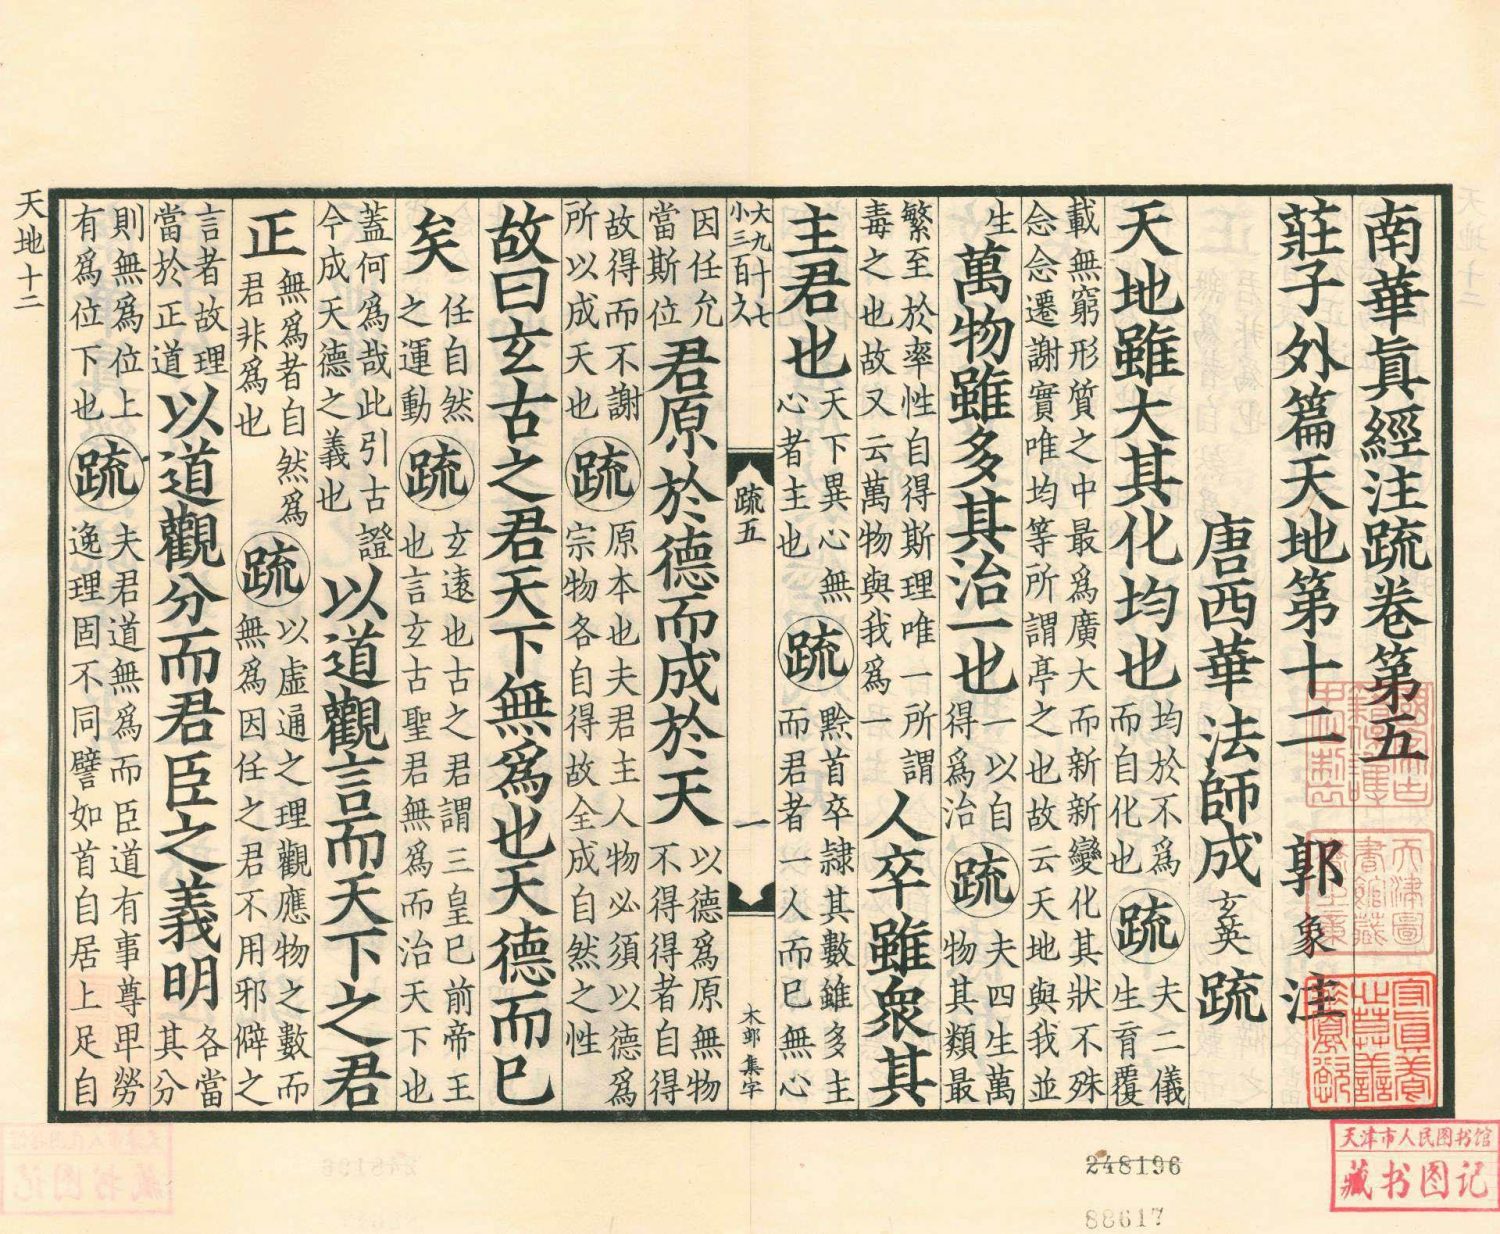 南華眞經注疏卷第五
莊子外篇天地第十二 郭象注
唐西華法師成玄英疏
天地雖大其化均也
均於不爲
而自化也
疏
夫二儀
生育覆
載無窮形質之中最爲廣大而新新變化其狀不殊
念念遷謝實唯均等所謂亭之也故云天地與我並
生
萬物雖多其治一也
一以自
得爲治
疏
夫四生萬
物其類最
繁至於率性自得斯理唯一所謂
毒之也故又云萬物與我爲一
人卒雖衆其
主君也
天下異心無
心者主也
疏
黔首卒隸其數雖多主
而君者一人而巳無心
大九十七
小三百九
疏五
一
木邨集字
因任允
當斯位
君原於德而成於天
以德爲原無物
不得得者自得
故得而不謝
所以成天也
疏
原本也夫君主人物必須以德爲
宗物各自得故全成自然之性
故曰玄古之君天下無爲也天德而巳
矣
任自然
之運動
疏
玄遠也古之君謂三皇巳前帝王
也言玄古聖君無爲而治天下也
蓋何爲哉此引古證
今成天德之義也
以道觀言而天下之君
正
無爲者自然爲
君非爲也
疏
以虛通之理觀應物之數而
無爲因任之君不用邪僻之
言者故理
當於正道
以道觀分而君臣之義明
各當
其分
則無爲位上
有爲位下也
疏
夫君道無爲而臣道有事尊卑勞
逸理固不同譬如首自居上足自
天地十二
248196
88617
天津市人民图书馆
藏书图记
天津圖
書館藏